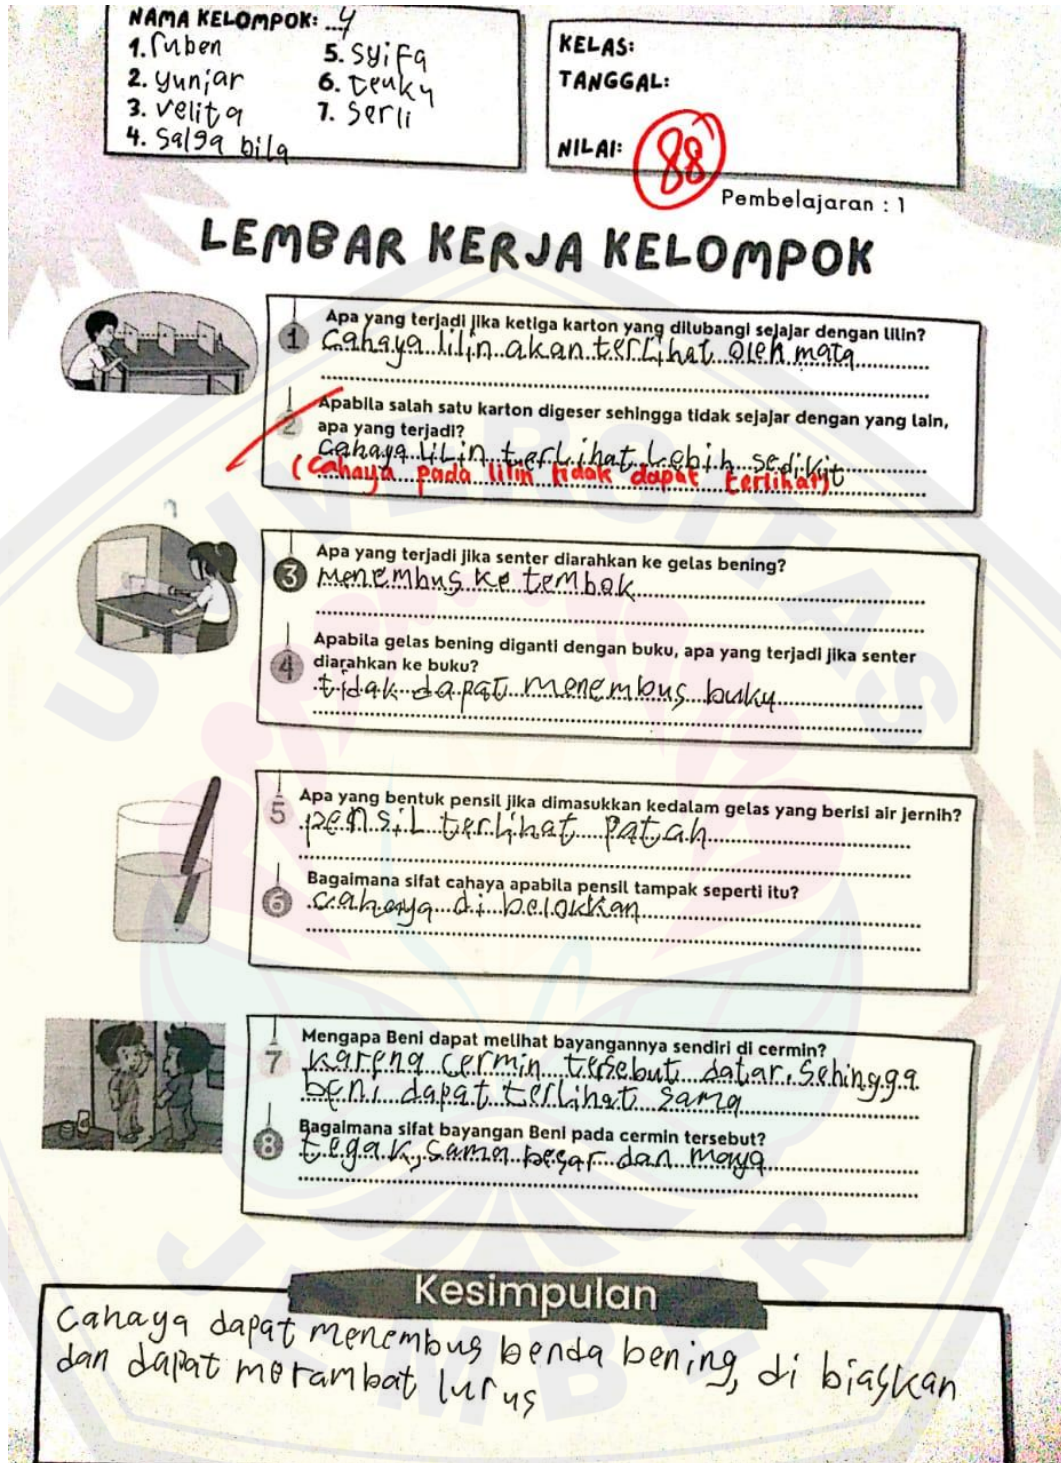 NAMA KELOMPOK: 4
1. ruben
2. yunjar
3. velita
4. Salsa bila
5. Syifa
6. teuku
7. Serli
KELAS:
TANGGAL:
NILAI: 88
Pembelajaran : 1
LEMBAR KERJA KELOMPOK
1 Apa yang terjadi jika ketiga karton yang dilubangi sejajar dengan lilin?
Cahaya lilin akan terlihat oleh mata
2 Apabila salah satu karton digeser sehingga tidak sejajar dengan yang lain,
apa yang terjadi?
Cahaya lilin terlihat lebih sedikit
(Cahaya pada lilin tidak dapat terlihat)
3 Apa yang terjadi jika senter diarahkan ke gelas bening?
Menembus ke tembok
4 Apabila gelas bening diganti dengan buku, apa yang terjadi jika senter
diarahkan ke buku?
tidak dapat menembus buku
5 Apa yang bentuk pensil jika dimasukkan kedalam gelas yang berisi air jernih?
pensil terlihat patah
6 Bagaimana sifat cahaya apabila pensil tampak seperti itu?
cahaya di belokkan
7 Mengapa Beni dapat melihat bayangannya sendiri di cermin?
karena cermin tersebut datar, Sehingga
beni dapat terlihat sama
8 Bagaimana sifat bayangan Beni pada cermin tersebut?
tegak, sama besar dan maya
Kesimpulan
Cahaya dapat menembus benda bening, di biaskan
dan dapat merambat lurus
UNIVERSITAS
JEMBER